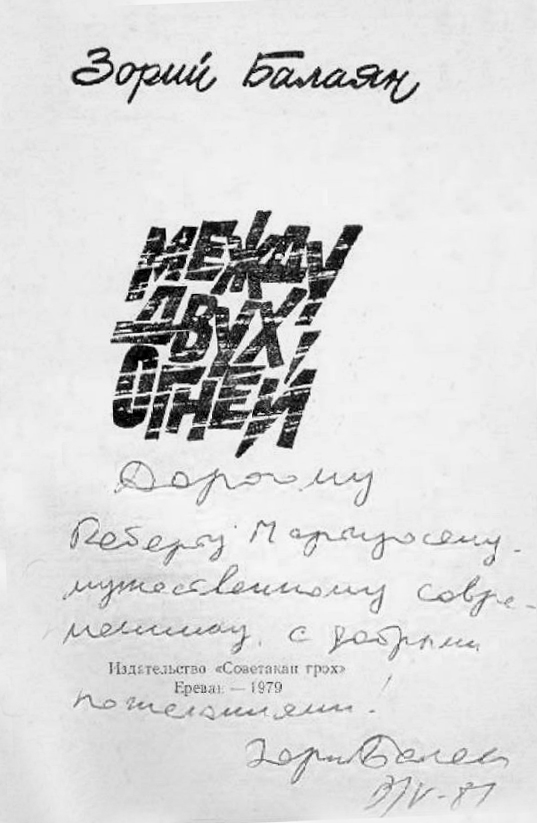 Зорий Балаян
МЕЖДУ
ДВУХ
ОГНЕЙ
Дорогому
Роберту Мартиросяну.
мужественному совре-
меннику. с добрыми
Издательство «Советакан грох»
Ереван — 1979
пожеланиями!
Зорий Балаян